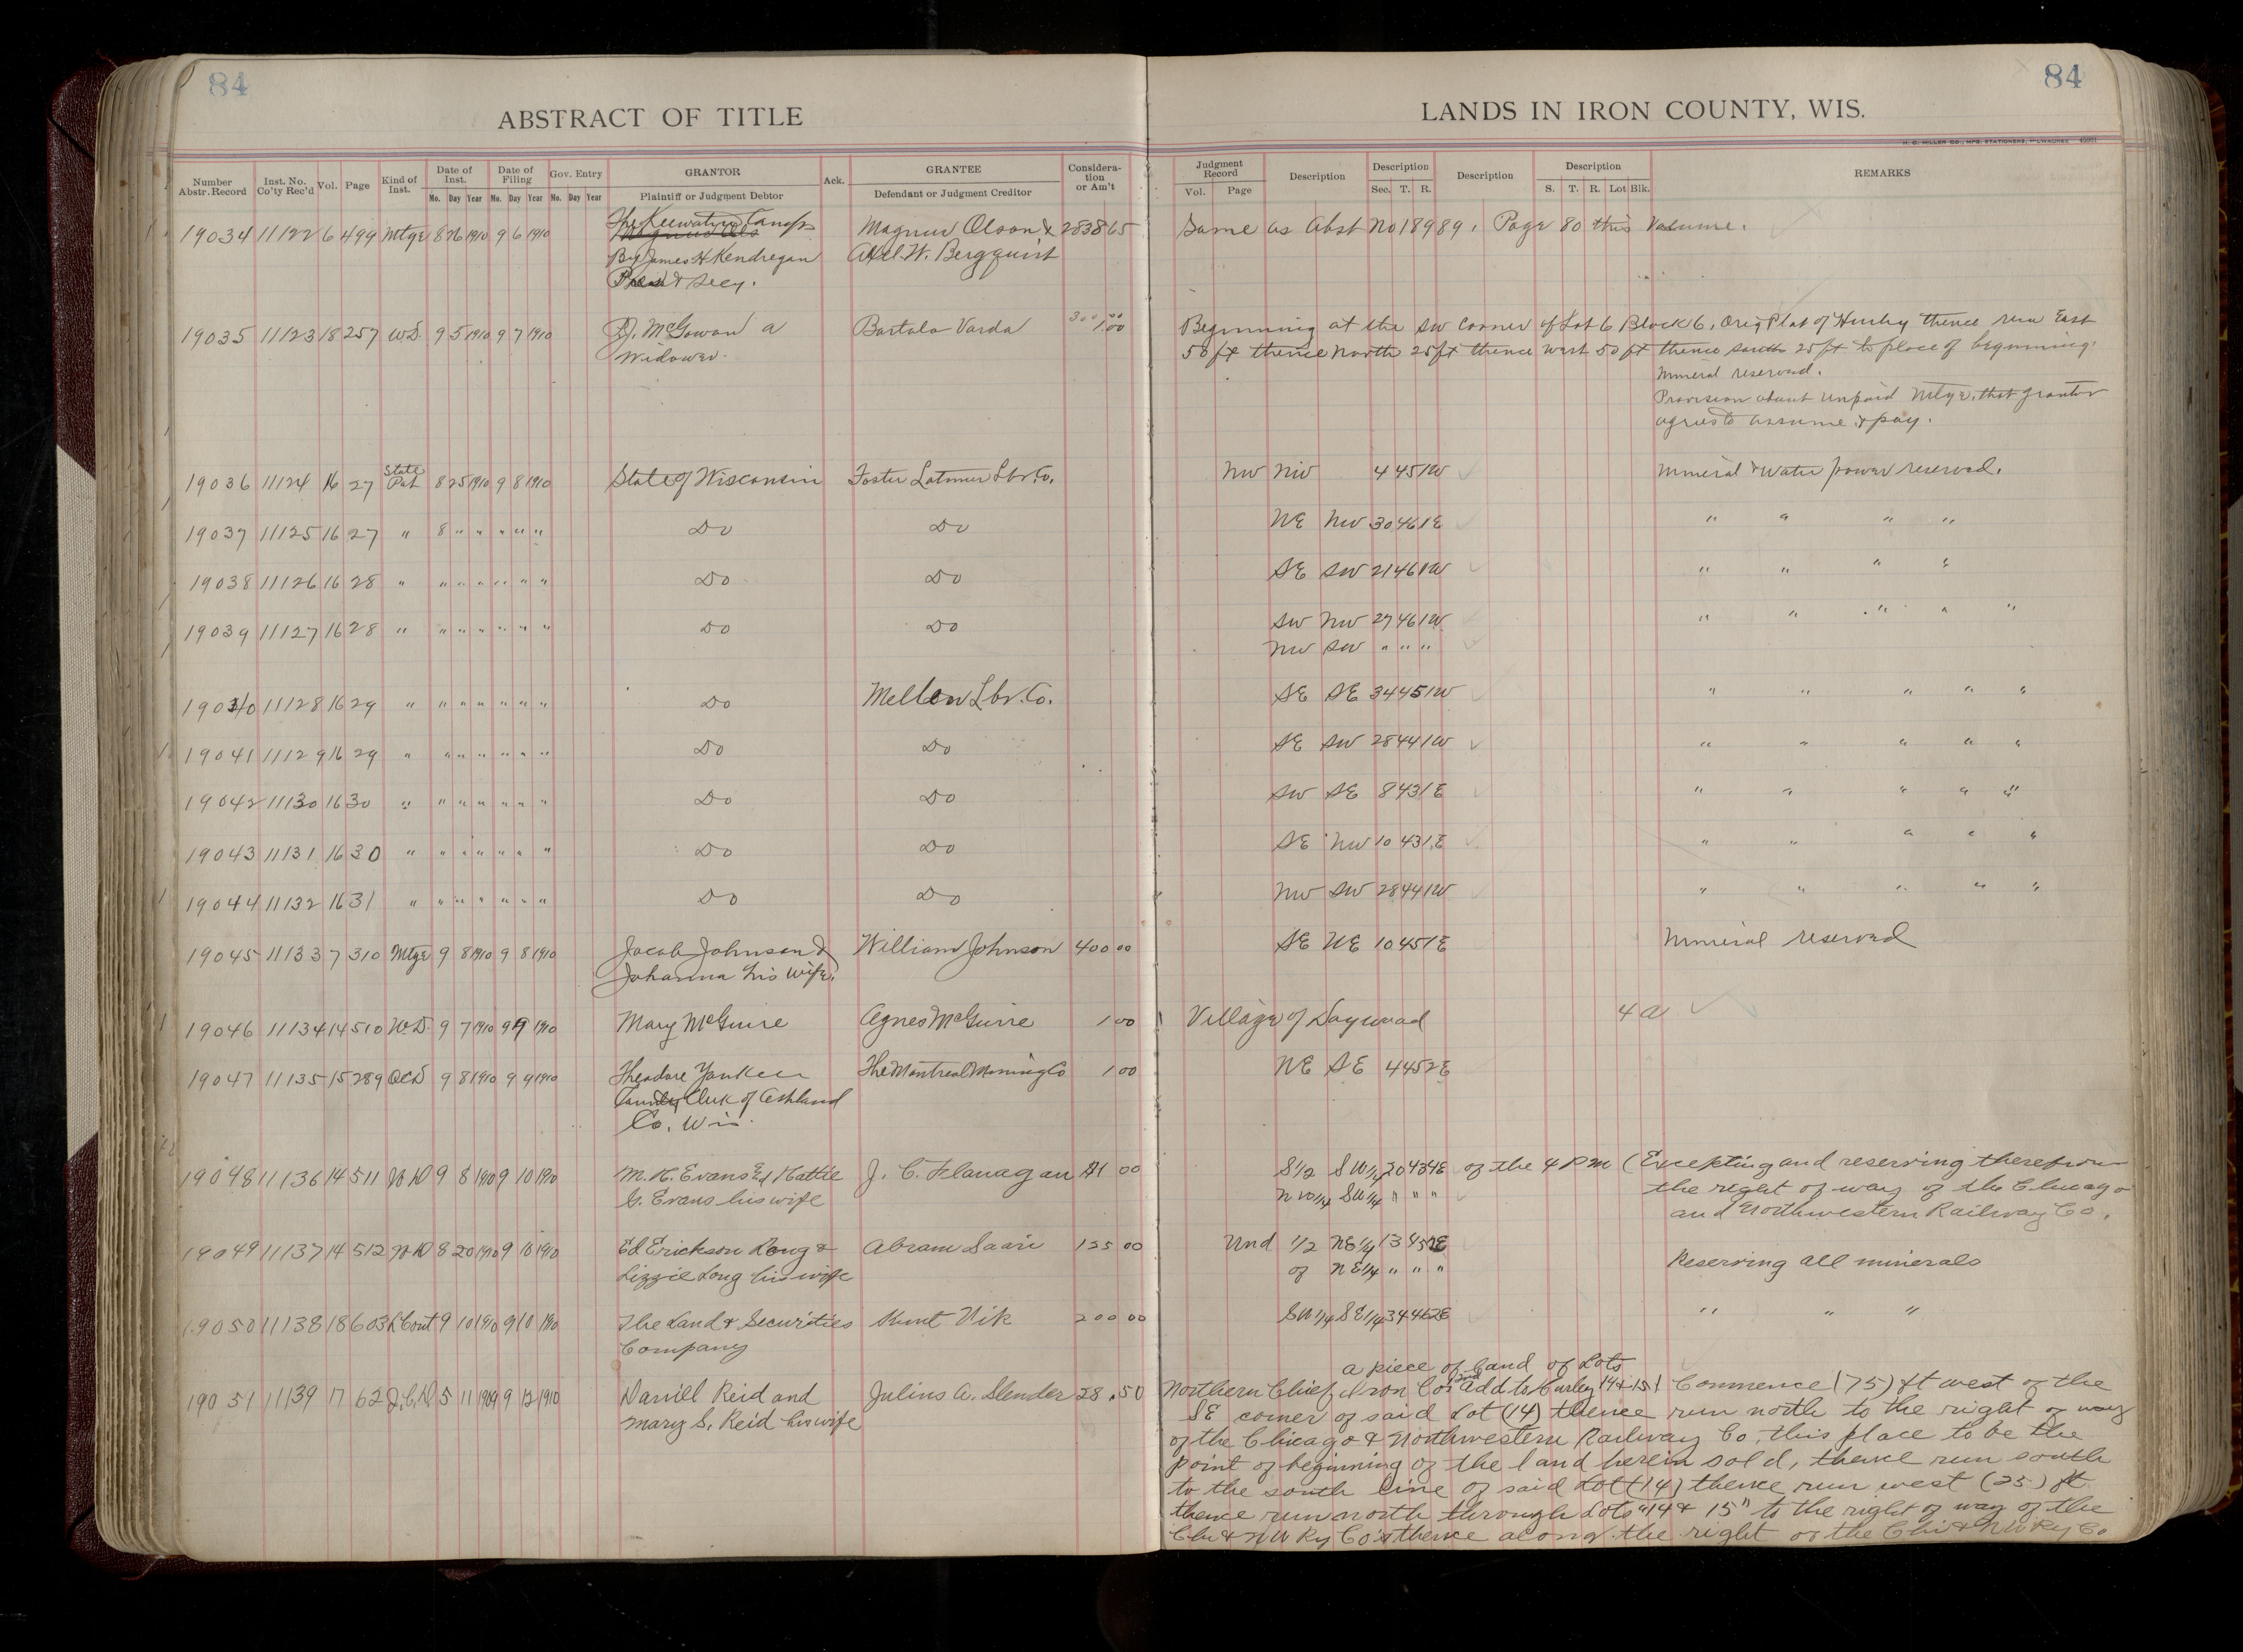 84
84
ABSTRACT OF TITLE
LANDS IN IRON COUNTY, WIS.
H. C. MILLER CO., MFG. STATIONERS, MILWAUKEE
Number Abstr. Record Inst. No. Co'ty Rec'd Vol. Page Kind of Inst. Date of Inst. Date of Filing Gov. Entry GRANTOR Ack. GRANTEE Considera-tion or Am't Judgment Record Description Description Description Description REMARKS
Mo. Day Year Mo. Day Year No. Day Year Plaintiff or Judgment Debtor Defendant or Judgment Creditor Vol. Page Sec. T. R. S. T. R. Lot Blk.
19034 11122 6 499 Mtge 8 26 1910 9 6 1910 The Keewatin Magnus Olson & 2838 65 Same as Abst No 18989, Page 80 this Volume.
By James H Kendregan Axel W. Bergquist
Pres & Secy.
19035 11123 18 257 WD. 9 5 1910 9 7 1910 D. McGowan a Bartalo Varda 300 00 1.00 Beginning at the SW corner of Lot 6 Block 6, Orig Plat of Hurley thence run East
Widower. 50 ft thence North 25 ft thence west 50 ft thence south 25 ft to place of beginning.
Mineral reserved.
Provision about unpaid Mtge, that grantor
agrees to assume & pay.
19036 11124 16 27 State Pat 8 25 1910 9 8 1910 State of Wisconsin Foster Latimer Lbr. Co. NW NW 4 45 1W Mineral & Water power reserved.
19037 11125 16 27 " 8 " " " " " Do Do NE NW 30 46 1E " " " "
19038 11126 16 28 " " " " " " " Do Do SE SW 21 46 1W " " " "
19039 11127 16 28 " " " " " " " Do Do SW NW 27 46 1W " " " " "
NW SW " " "
19040 11128 16 29 " " " " " " " Do Mellen Lbr. Co. SE SE 34 45 1W " " " " "
19041 11129 16 29 " " " " " " " Do Do SE SW 28 44 1W " " " " "
19042 11130 16 30 " " " " " " " Do Do SW SE 8 43 1E " " " " "
19043 11131 16 30 " " " " " " " Do Do SE NW 10 43 1E " " " " "
19044 11132 16 31 " " " " " " " Do Do NW SW 28 44 1W " " " " "
19045 11133 7 310 Mtge 9 8 1910 9 8 1910 Jacob Johnson & William Johnson 400 00 SE NE 10 45 1E Mineral reserved
Johanna his wife.
19046 11134 14 510 WD. 9 7 1910 9 9 1910 Mary McGuire Agnes McGuire 1 00 Village of 4
19047 11135 15 289 QCD 9 8 1910 9 9 1910 Theodore Yankee The Montreal Mining Co 1 00 NE SE 4 45 2E
County Clerk of Ashland
Co. Wis.
19048 11136 14 511 WD 9 8 1910 9 10 1910 M. K. Evans & Hattie J. C. Flanagan $1 00 S1/2 SW1/4 20 43 4E of the 4 P M (Excepting and reserving therefrom
G. Evans his wife NW1/4 SW1/4 " " " the right of way of the Chicago
and Northwestern Railway Co.
19049 11137 14 512 WD 8 20 1910 9 10 1910 Ed Erickson Long & Abram Saari 125 00 Und 1/2 NE1/4 13 45 2E
Lizzie Long his wife of NE1/4 " " " Reserving all minerals
19050 11138 18 603 L Cont 9 10 1910 9 10 1910 The Land & Securities Knut Vik 200 00 SW1/4 SE1/4 34 46 2E " " "
Company
a piece of land of Lots
19051 11139 17 62 5 11 1909 9 12 1910 Darrill Reid and Julius A. Slender 28.50 Northern Chief Iron Co's 2nd Add to Hurley 14 & 15 Commence (75) ft west of the
Mary S. Reid his wife SE corner of said Lot (14) thence run north to the right of way
of the Chicago & Northwestern Railway Co, this place to be the
point of beginning of the land herein sold, thence run south
to the south line of said Lot (14) thence run west (25) ft
thence run north through Lots "14 & 15" to the right of way of the
Chi & NW Ry Co's thence along the right of the Chi & NW Ry Co